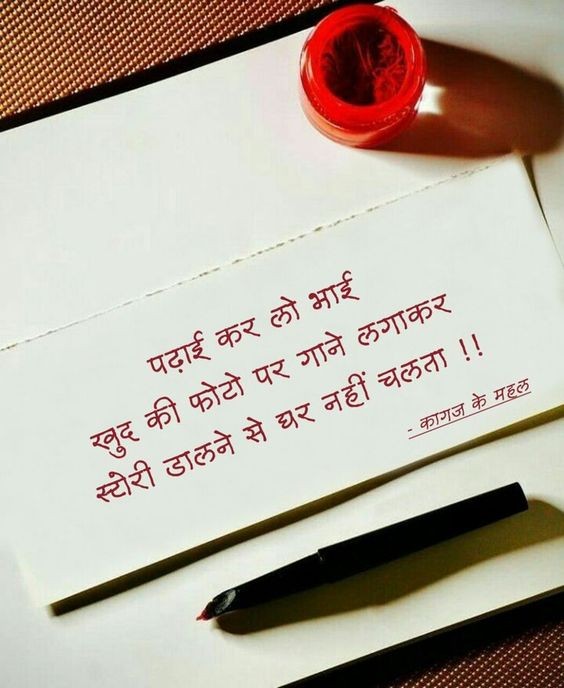 पढ़ाई कर लो भाई
खुद की फोटो पर गाने लगाकर
स्टोरी डालने से घर नहीं चलता !!
- कागज के महल